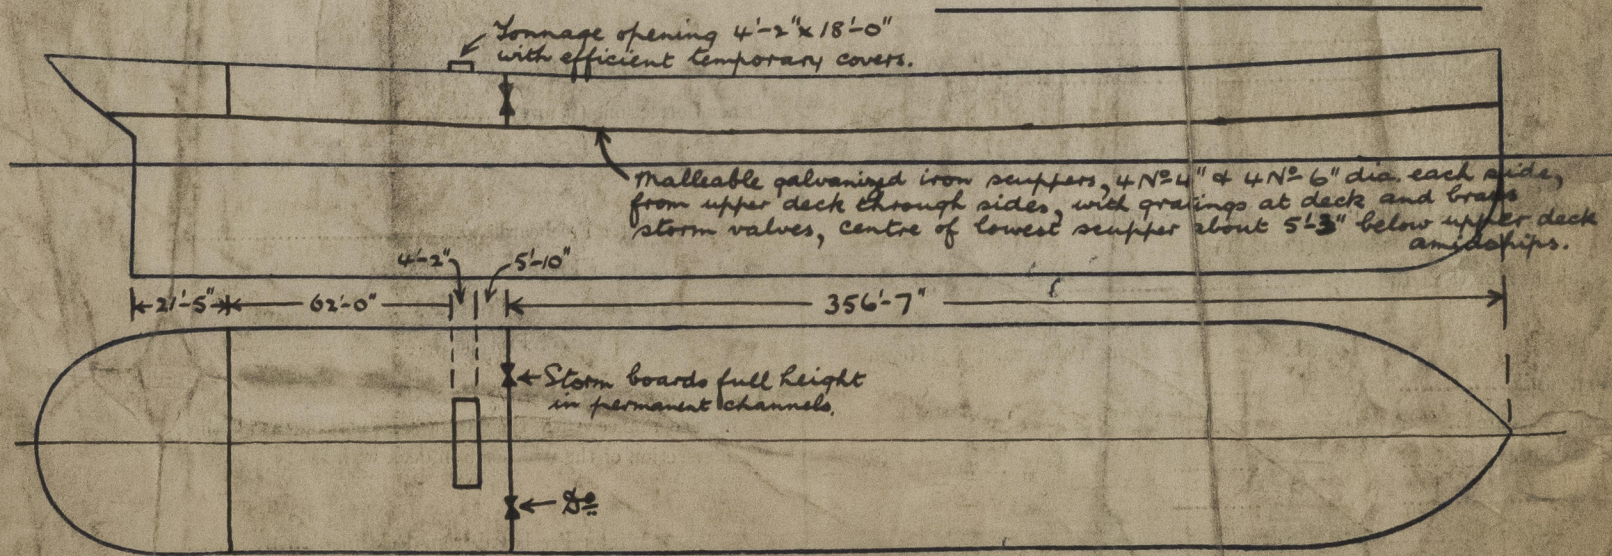 Tonnage opening 4'-2" x 18'-0"
with efficient temporary covers.
Malleable galvanized iron scuppers, 4 Nº 4" & 4 Nº 6" dia. each side,
from upper deck through sides, with gratings at deck and brass
storm valves, centre of lowest scupper about 5'-3" below upper deck
amidships.
4'-2" 5'-10"
21'-5" 62'-0" 356'-7"
Storm boards full height
in permanent channels.
Dº